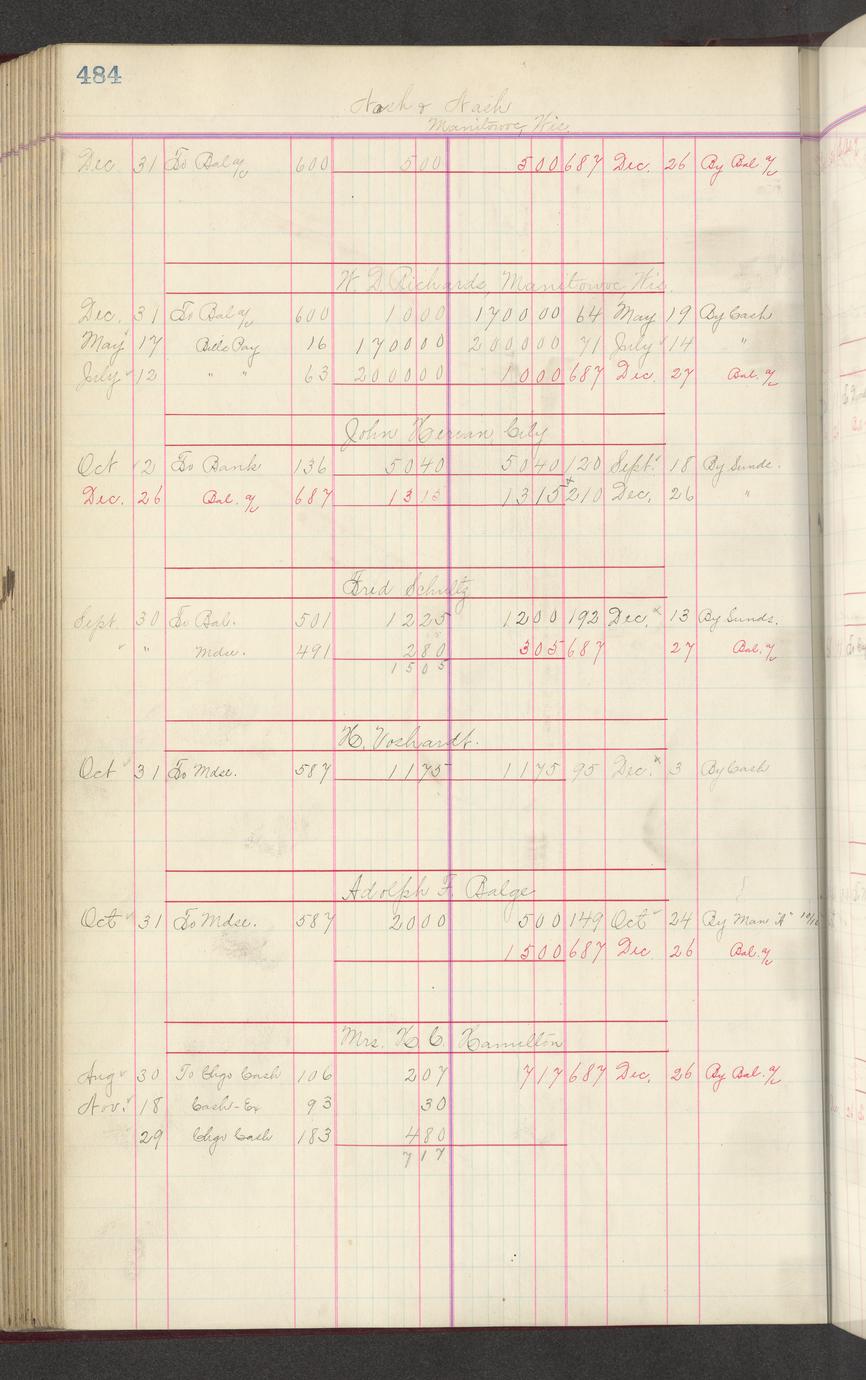 484
Nash & Nash
Manitowoc, Wis.
Dec 31 To Bal a/c 600 500 500 687 Dec. 26 By Bal a/c
W. D. Richards, Manitowoc Wis.
Dec. 31 To Bal a/c 600 1000 170000 64 May 19 By Cash
May 17 Bills Pay 16 170000 200000 71 July 14 "
July 12 " " 63 200000 1000 687 Dec. 27 Bal. a/c
John City
Oct 12 To Bank 136 5040 5040 120 Sept. 18 By Sunds.
Dec. 26 Bal. a/c 687 1315 1315 210 Dec. 26 "
Fred Schultz
Sept. 30 To Bal. 501 1225 1200 192 Dec. 13 By Sunds.
" " Mdse. 491 280 305 687 27 Bal. a/c
1505
H. Voshardt.
Oct 31 To Mdse. 587 1175 1175 95 Dec. 3 By Cash
Adolph F. Balge
Oct 31 To Mdse. 587 2000 500 149 Oct 24 By Man "A"
1500 687 Dec 26 Bal. a/c
Mrs. H. C. Hamilton
Aug 30 To Chgo Cash 106 207 717 687 Dec. 26 By Bal. a/c
Nov. 18 Cash-Ex 93 30
29 Chgo Cash 183 480
717